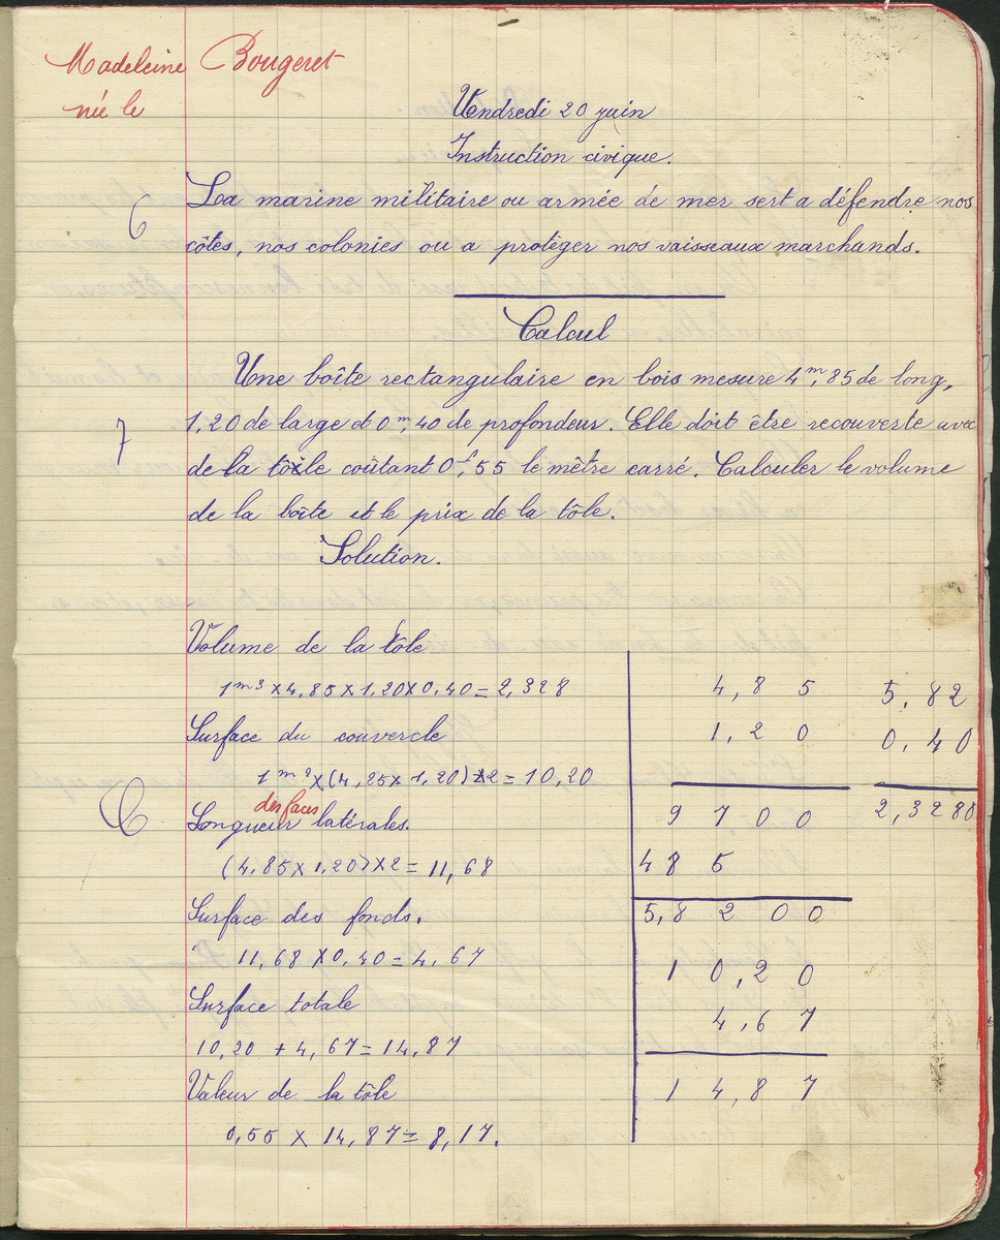 Madeleine Bougeret
née le
Vendredi 20 juin
Instruction civique.
6
La marine militaire ou armée de mer sert a défendre nos
côtes, nos colonies ou a protèger nos vaisseaux marchands.
Calcul
Une boîte rectangulaire en bois mesure 4m,85 de long,
7
1,20 de large et 0m,40 de profondeur. Elle doit être recouverte avec
de la tôle coûtant 0f,55 le mètre carré. Calculer le volume
de la boîte et le prix de la tôle.
Solution.
Volume de la tôle
1m3 x 4,85 x 1,20 x 0,40 = 2,328
Surface du couvercle
1m2 x (4,25 x 1,20) x 2 = 10,20
des faces
Longueur latérales.
(4,85 x 1,20) x 2 = 11,68
Surface des fonds.
11,68 x 0,40 = 4,67
Surface totale
10,20 + 4,67 = 14,87
Valeur de la tôle
0,55 x 14,87 = 8,17.
4,85
1,20
9700
485
5,8200
10,20
4,67
14,87
5,82
0,40
2,3280